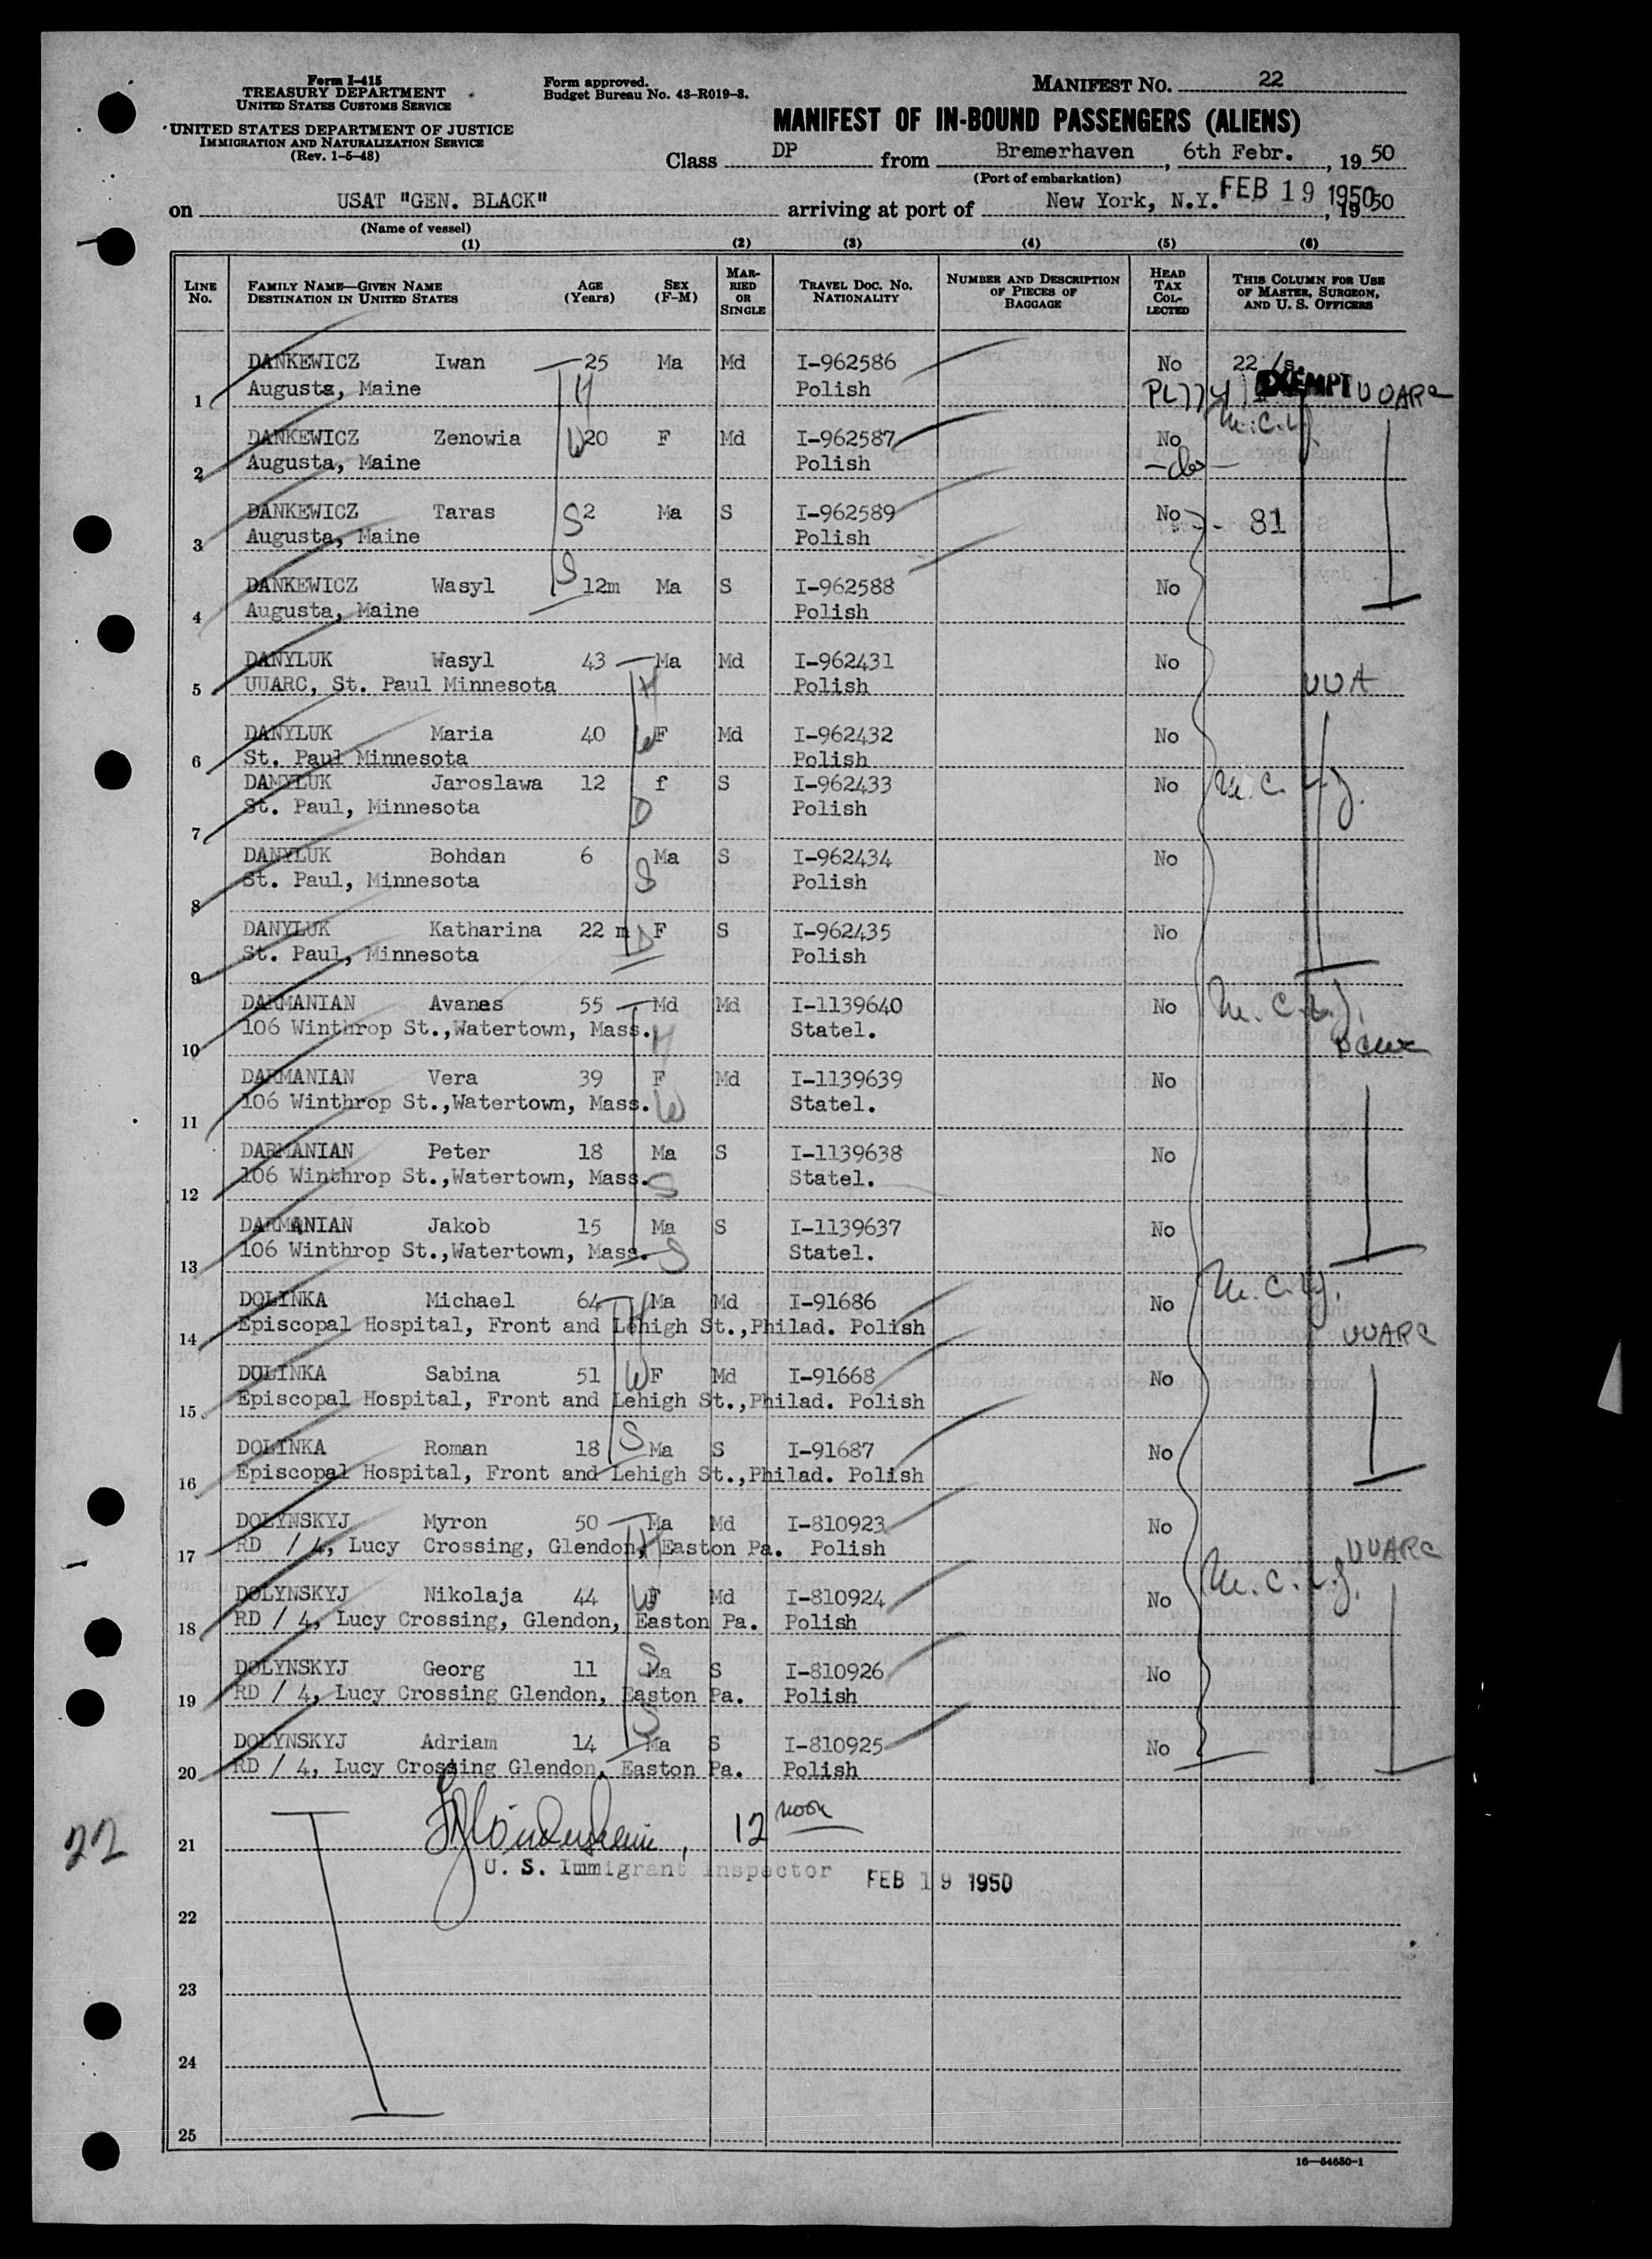 Form I-415
TREASURY DEPARTMENT
UNITED STATES CUSTOMS SERVICE
UNITED STATES DEPARTMENT OF JUSTICE
IMMIGRATION AND NATURALIZATION SERVICE
(Rev. 1-5-48)
Form approved.
Budget Bureau No. 43-R019-3.
MANIFEST NO. 22
MANIFEST OF IN-BOUND PASSENGERS (ALIENS)
Class DP from Bremerhaven, 6th Febr., 19 50
(Port of embarkation)
on USAT "GEN. BLACK" arriving at port of New York, N.Y. FEB 19 1950, 19 50
(Name of vessel)
(1) (2) (3) (4) (5) (6)
LINE No. FAMILY NAME—GIVEN NAME DESTINATION IN UNITED STATES AGE (Years) SEX (F-M) MARRIED OR SINGLE TRAVEL DOC. NO. NATIONALITY NUMBER AND DESCRIPTION OF PIECES OF BAGGAGE HEAD TAX COLLECTED THIS COLUMN FOR USE OF MASTER, SURGEON, AND U. S. OFFICERS
DANKEWICZ Iwan 25 Ma Md I-962586 No 22 /s.
1 Augusta, Maine H Polish PL774 EXEMPT UUARC
DANKEWICZ Zenowia W 20 F Md I-962587 No
2 Augusta, Maine Polish -do-
DANKEWICZ Taras S 2 Ma S I-962589 No 81
3 Augusta, Maine Polish
DANKEWICZ Wasyl S 12m Ma S I-962588 No
4 Augusta, Maine Polish
DANYLUK Wasyl 43 Ma Md I-962431 No
5 UUARC, St. Paul Minnesota H Polish UUA
DANYLUK Maria 40 W F Md I-962432 No
6 St. Paul Minnesota Polish
DAMYLUK Jaroslawa 12 f S I-962433 No
7 St. Paul, Minnesota D Polish
DANYLUK Bohdan 6 Ma S I-962434 No
8 St. Paul, Minnesota S Polish
DANYLUK Katharina 22 m D F S I-962435 No
9 St. Paul, Minnesota Polish
DARMANIAN Avanes 55 Md Md I-1139640 No
10 106 Winthrop St.,Watertown, Mass. H Statel.
DARMANIAN Vera 39 F Md I-1139639 No
11 106 Winthrop St.,Watertown, Mass. W Statel.
DARMANIAN Peter 18 Ma S I-1139638 No
12 106 Winthrop St.,Watertown, Mass. S Statel.
DARMANIAN Jakob 15 Ma S I-1139637 No
13 106 Winthrop St.,Watertown, Mass. S Statel.
DOLINKA Michael 64 H Ma Md I-91686 No
14 Episcopal Hospital, Front and Lehigh St.,Philad. Polish UUARC
DOLINKA Sabina 51 W F Md I-91668 No
15 Episcopal Hospital, Front and Lehigh St.,Philad. Polish
DOLINKA Roman 18 S Ma S I-91687 No
16 Episcopal Hospital, Front and Lehigh St.,Philad. Polish
DOLYNSKYJ Myron 50 Ma Md I-810923 No
17 RD / 4, Lucy Crossing, Glendon, H Easton Pa. Polish UUARC
DOLYNSKYJ Nikolaja 44 W F Md I-810924 No
18 RD / 4, Lucy Crossing, Glendon, Easton Pa. Polish
DOLYNSKYJ Georg 11 S Ma S I-810926 No
19 RD / 4, Lucy Crossing Glendon, Easton Pa. Polish
DOLYNSKYJ Adriam 14 S Ma S I-810925 No
20 RD / 4, Lucy Crossing Glendon, Easton Pa. Polish
22
21 12 noon
U. S. Immigrant Inspector FEB 19 1950
22
23
24
25
16—54650-1